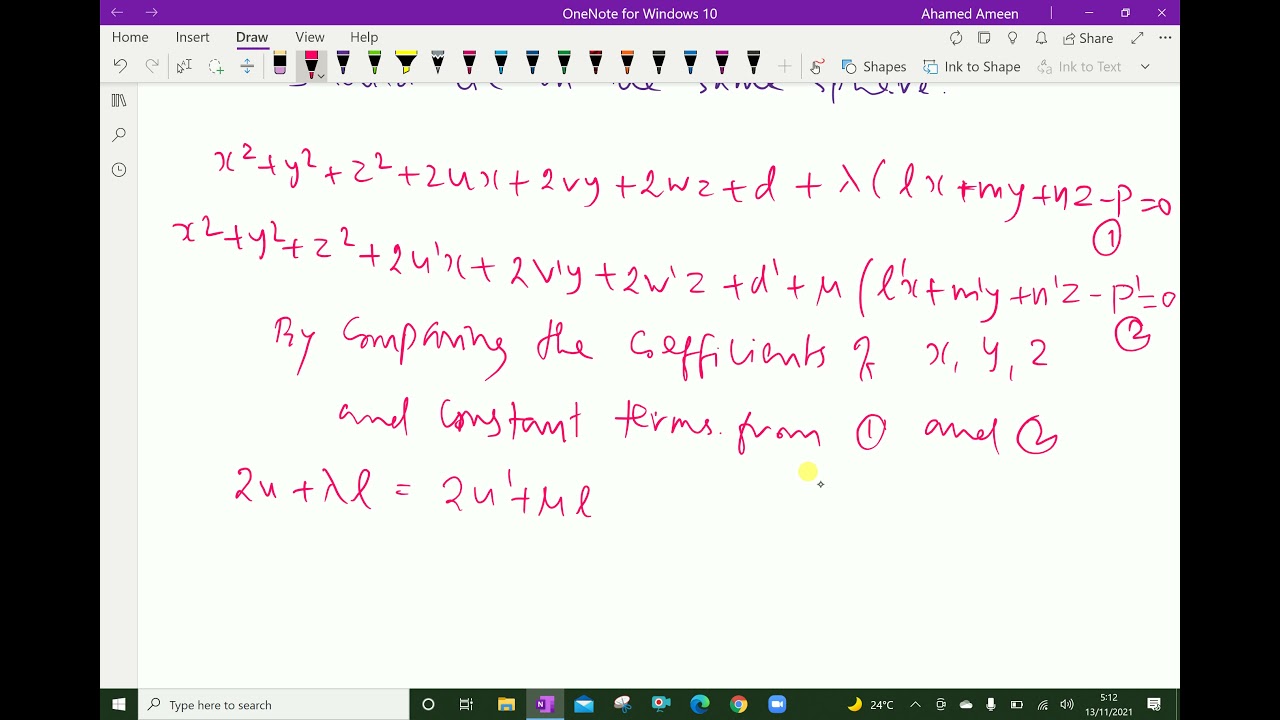 OneNote for Windows 10
Ahamed Ameen
Home Insert Draw View Help
Share
Shapes Ink to Shape Ink to Text
same sphere.
x²+y²+z²+2ux+2vy+2wz+d+λ(lx+my+nz-p=0
①
x²+y²+z²+2u'x+2v'y+2w'z+d'+μ(l'x+m'y+n'z-p'=0
②
By comparing the coefficients of x, y, z
and constant terms. from ① and ②
2u+λl = 2u'+μl
Type here to search
24°C
5:12
13/11/2021